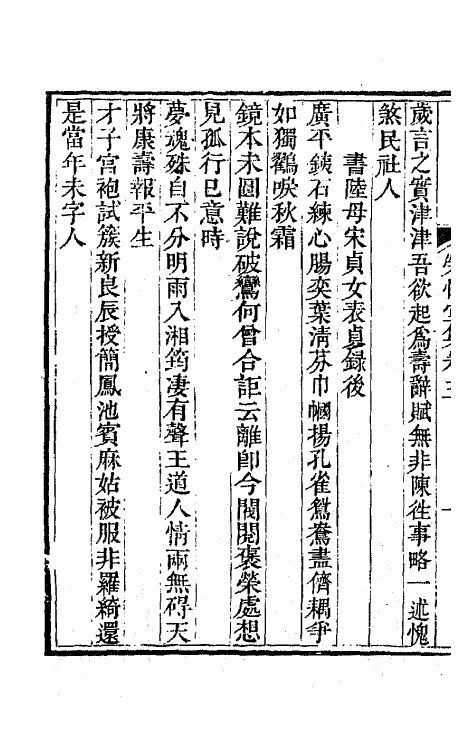 歲言之實津津吾欲起爲壽辭賦無非陳往事略一述愧
煞民社人
書陸母宋貞女表貞録後
廣平鐵石練心腸奕葉淸芬巾幗揚孔雀鴛鴦盡儕耦爭
如獨鶴唳秋霜
鏡本未圓難說破鸞何曾合詎云離卽今閥閱褒榮處想
見孤行已意時
夢魂殊自不分明雨入湘筠淒有聲王道人情兩無碍天
將康壽報平生
才子宮袍試簇新良辰授簡鳳池賓麻姑被服非羅綺還
是當年未字人